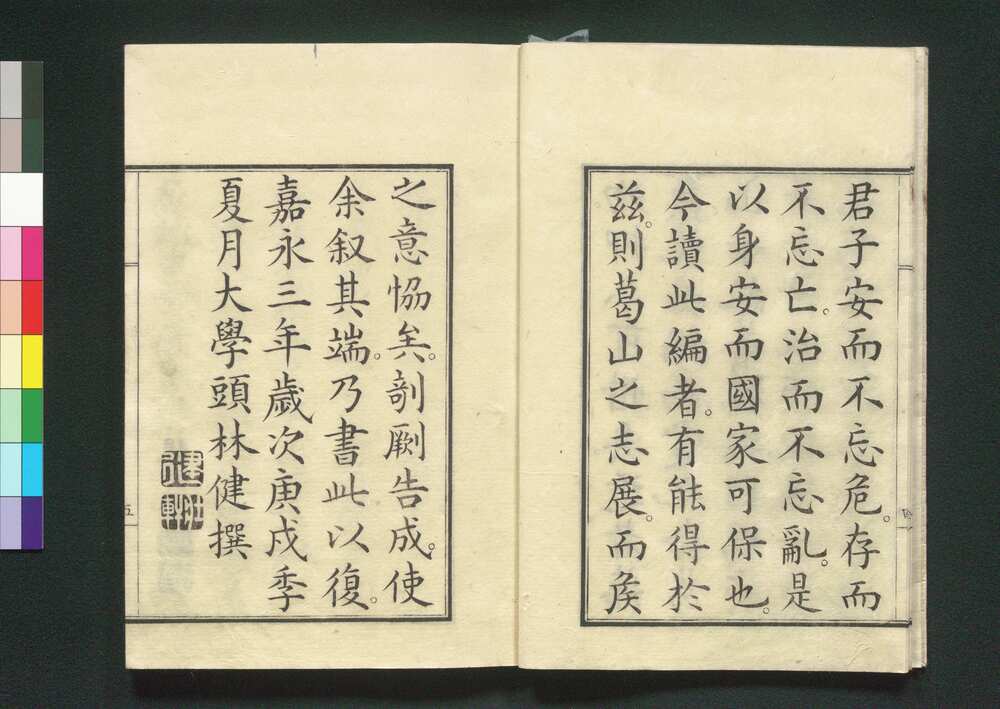 君子安而不忘危。存而
不忘亡。治而不忘亂。是
以身安而國家可保也。
今讀此編者。有能得於
茲。則葛山之志展。而矦
之意協矣。剞劂告成。使
余叙其端。乃書此以復。
嘉永三年歲次庚戌季
夏月大學頭林健撰
五